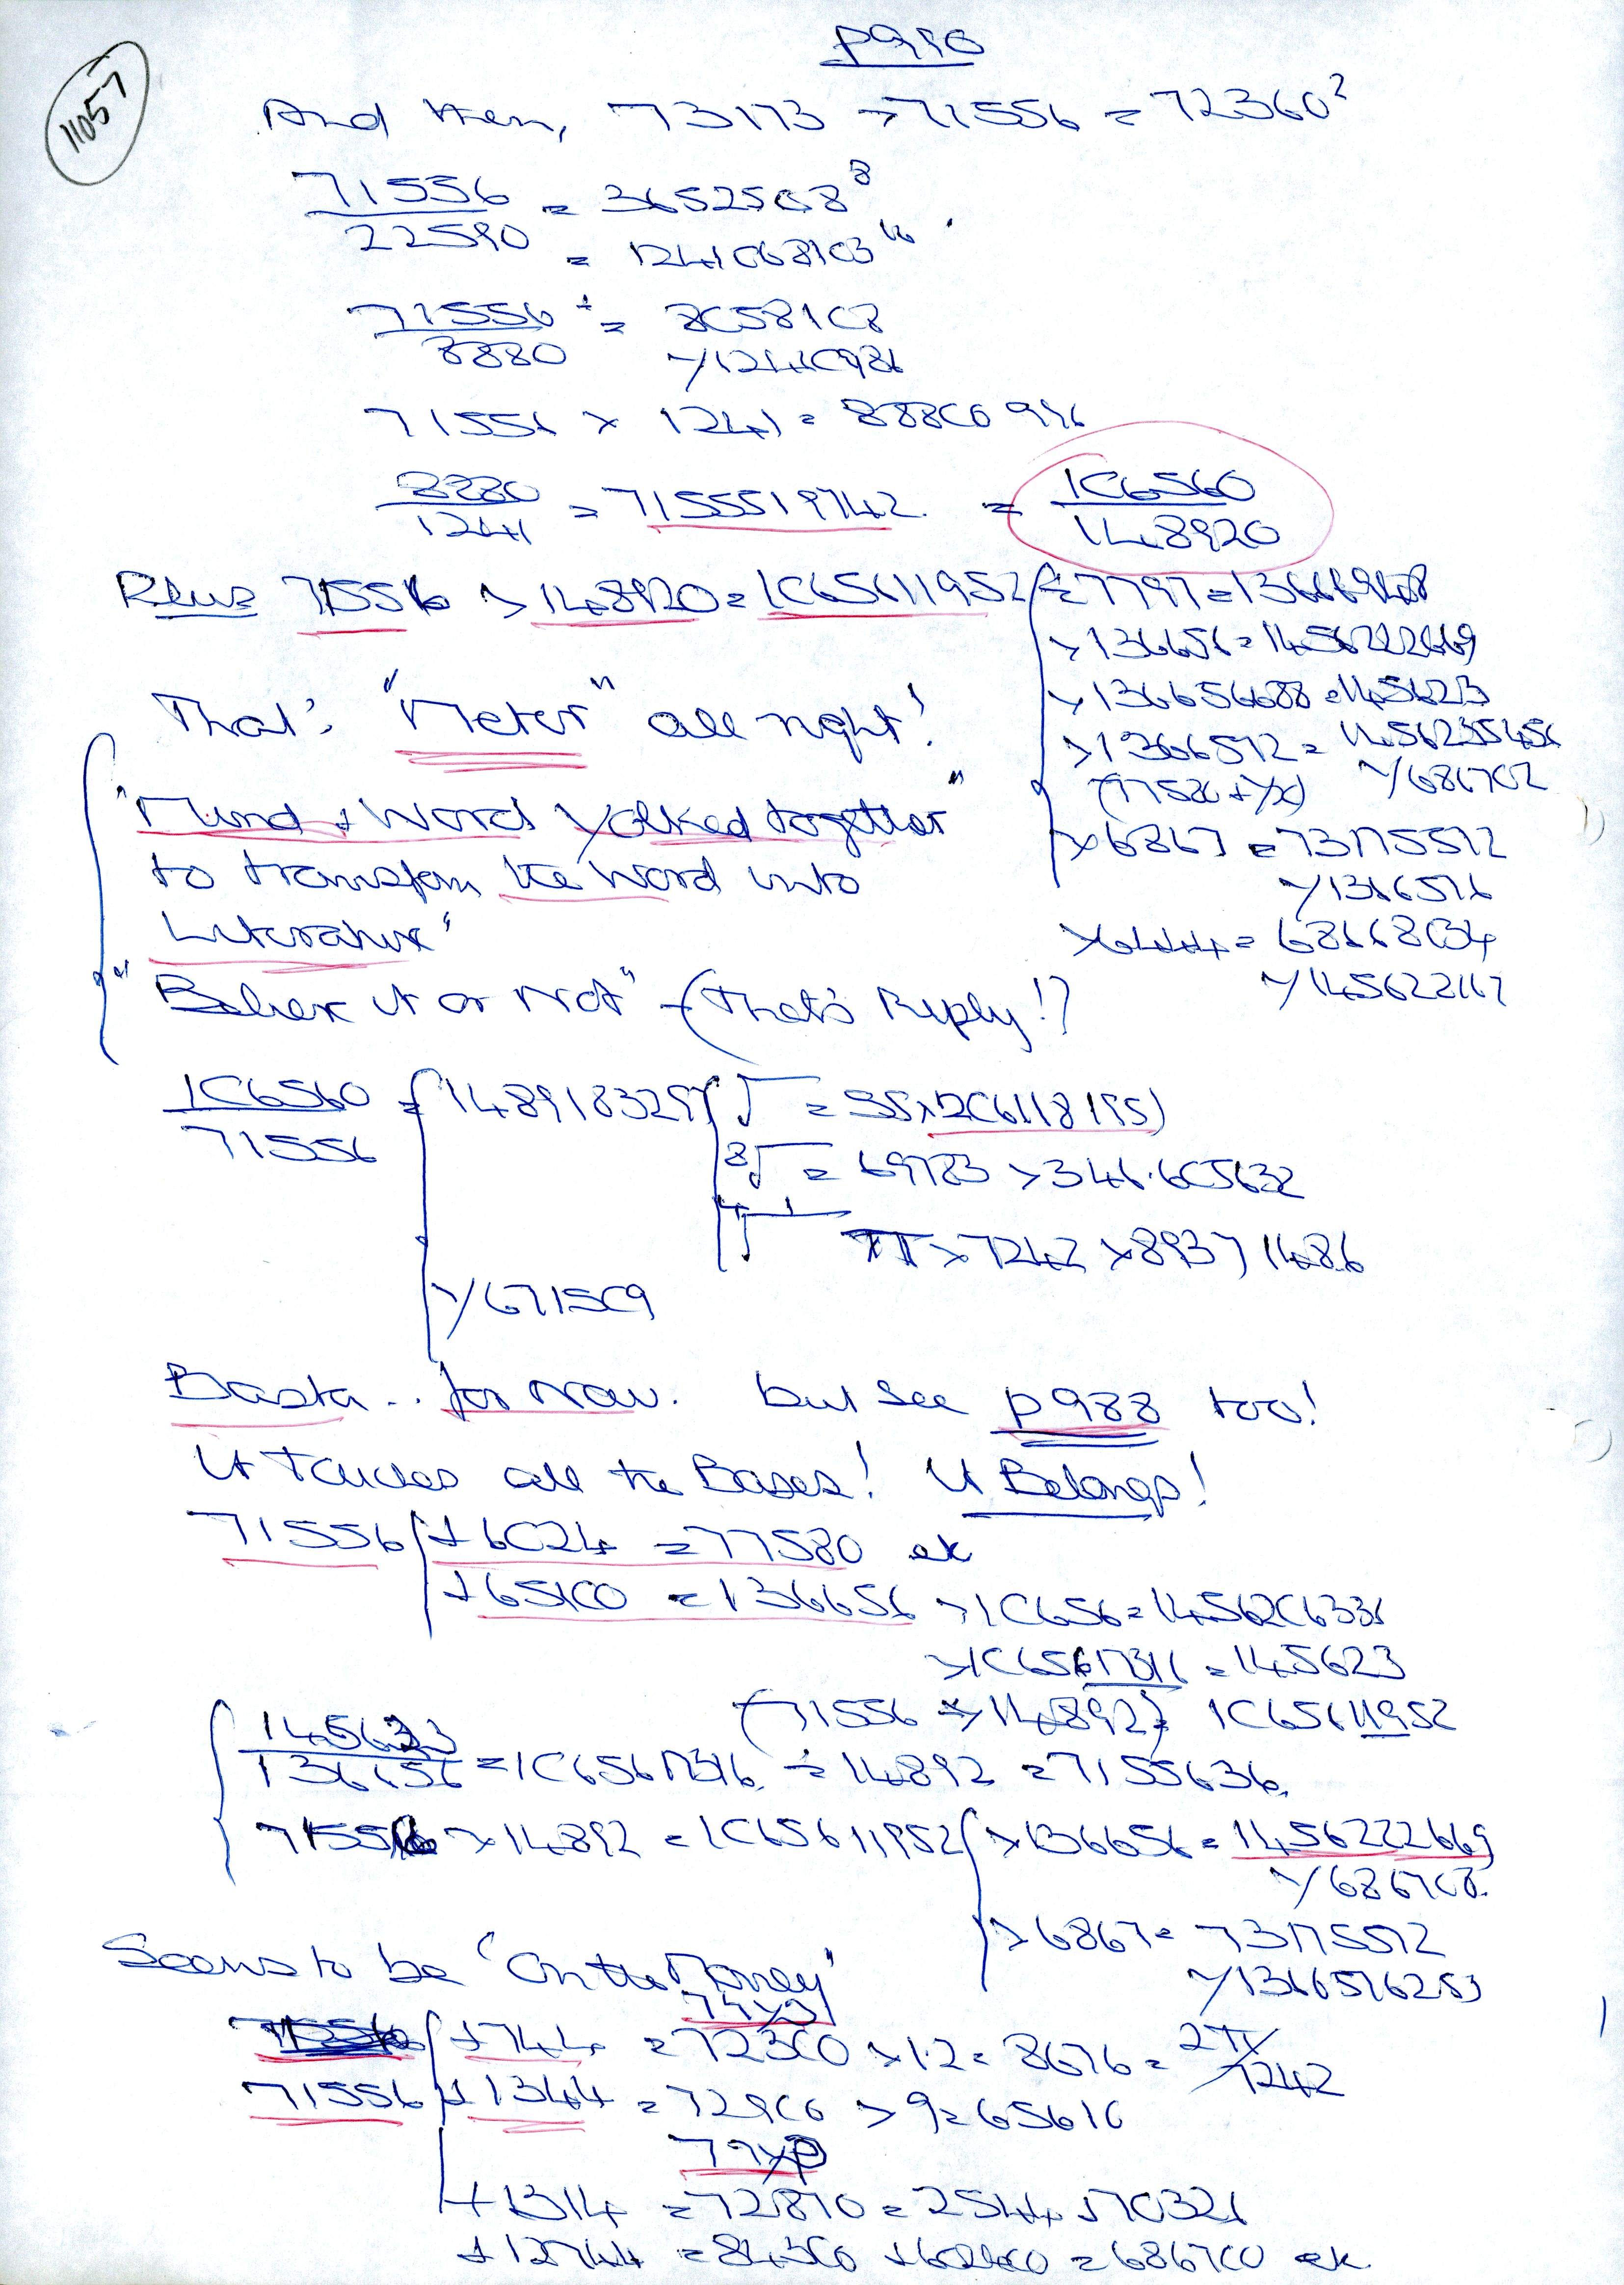 p990
11057
And then, 73173 > 71556 = 72360²
71556/22590 = 3652508⁸
= 1241068103¹⁶
71556/8880 = 8058108
y/12410986
71556 x 1241 = 88800996
8880/1241 = 7155519742 = 106560/148920
Plus 71556 > 148920 = 1065611952
> 136656 = 1456222669
> 136656688 = 145623
> 1366592 = 14562355456
y/686702
x 6867 = 73175592
y/1366576
x6444 = 68668034
y/145622167
That's "Meter" all right!
"Mind + Word Yolked together"
to transform the Word into
Literature"
"Believe it or Not" - (That's Reply!?
106560/71556 = 1489183297 √ = 
⁸√ = 69783 > 346.605632
π x 7242 x 89371486
y/671509
Basta .. for now. but see p988 too!
It Touches all the Bases! It Belongs!
71556 + 6024 = 77580 ek
+ 65100 = 136656 > 10656 = 1456206336
> 1065617316 = 145623
(71556 x 14892) = 1065611952
145623/136656 = 1065617316 ÷ 14892 = 7155636
71556 x 14892 = 1065611952 > 136656 = 1456222669
y/686708
> 6867 = 73175592
y/1366576253
Seems to be 'On the Money'
+ 744 = 72300 x 1.2 = 8676 = 2π/7242
71556 + 1344 = 72900 > 9 = 65610
+ 1314 = 72870 = 2544 + 70326
+ 12744 = 84300 + 602400 = 686700 ek